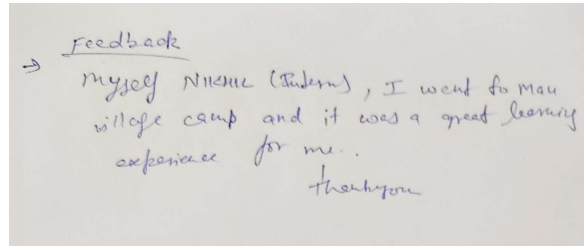 Feedback
→ Myself Nikhil (Intern), I went to Mau
village camp and it was a great learning
experience for me..
Thankyou